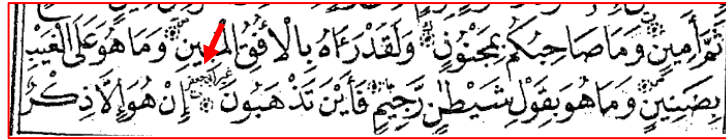 ثَمَّ أَمِينٍ وَمَا صَاحِبُكُم بِمَجْنُونٍ وَلَقَدْ رَءَاهُ بِالْأُفُقِ الْمُبِينِ وَمَا هُوَ عَلَى الْغَيْبِ
غير أبي جعفر
بِضَنِينٍ وَمَا هُوَ بِقَوْلِ شَيْطَٰنٍ رَّجِيمٍ فَأَيْنَ تَذْهَبُونَ إِنْ هُوَ إِلَّا ذِكْرٌ